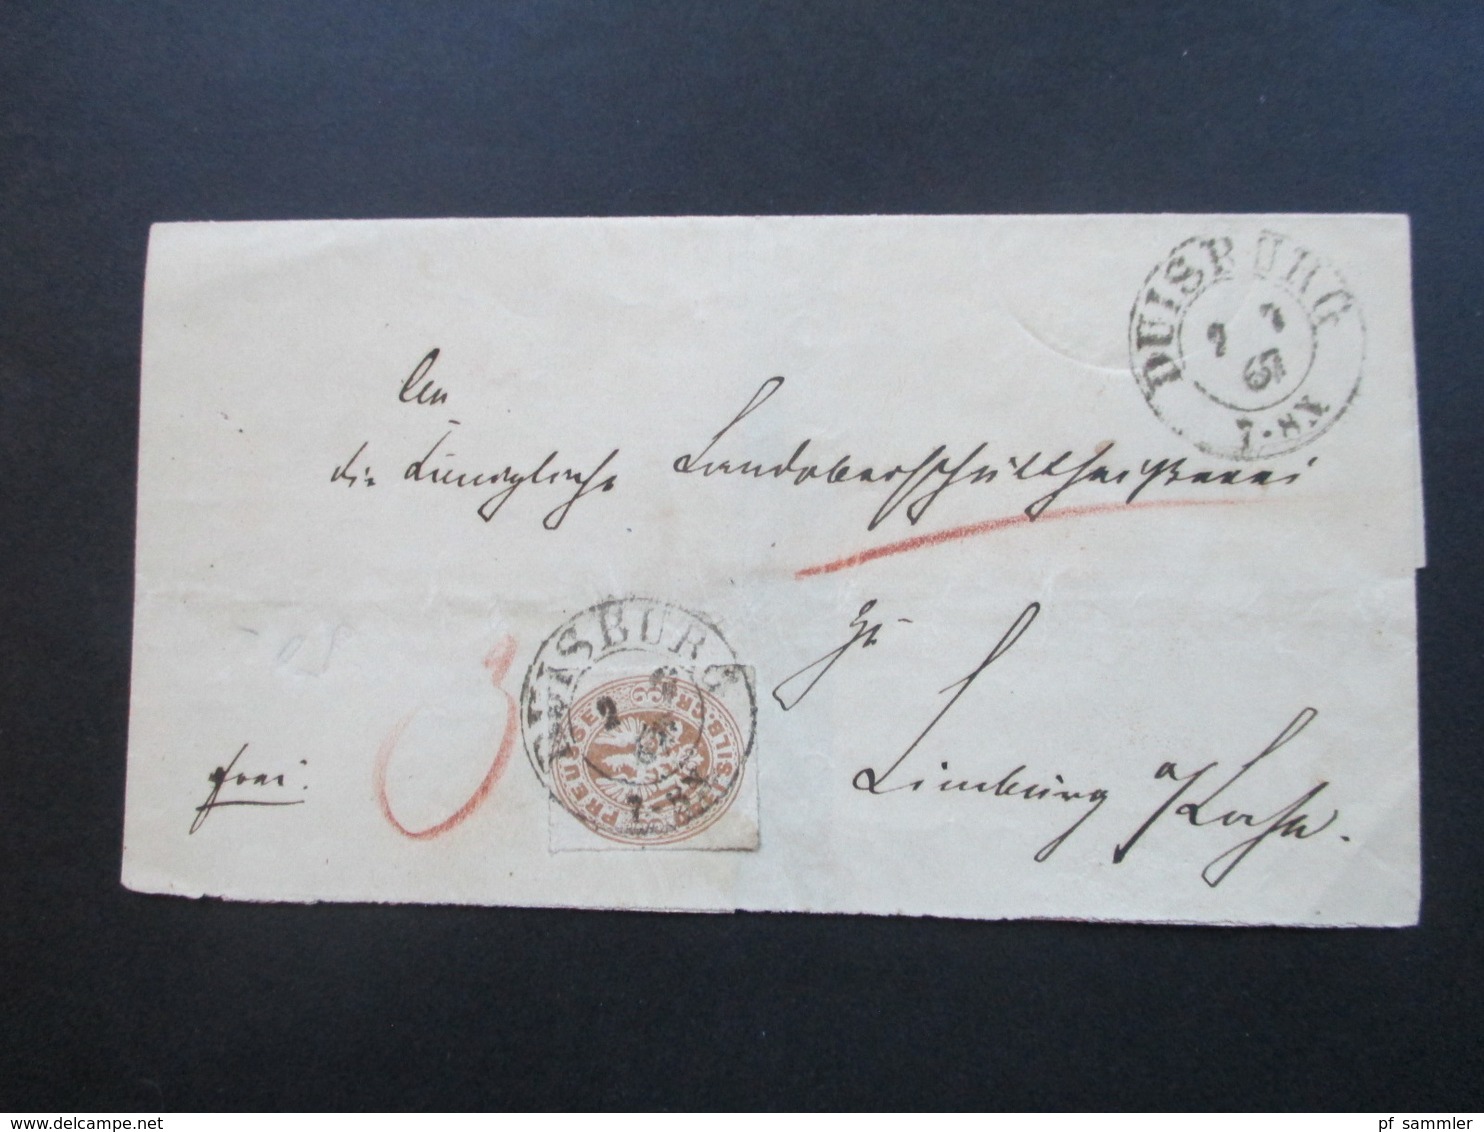 DUISBURG
2 7
67
7-8N
An
die Königliche Landoberschultheißerei
zu
Limburg a/Lahn.
frei.
3
DUISBURG
2
7-8N
PREUSSEN
SILB. GR.
© DELCAMPE.NET
pf_sammler